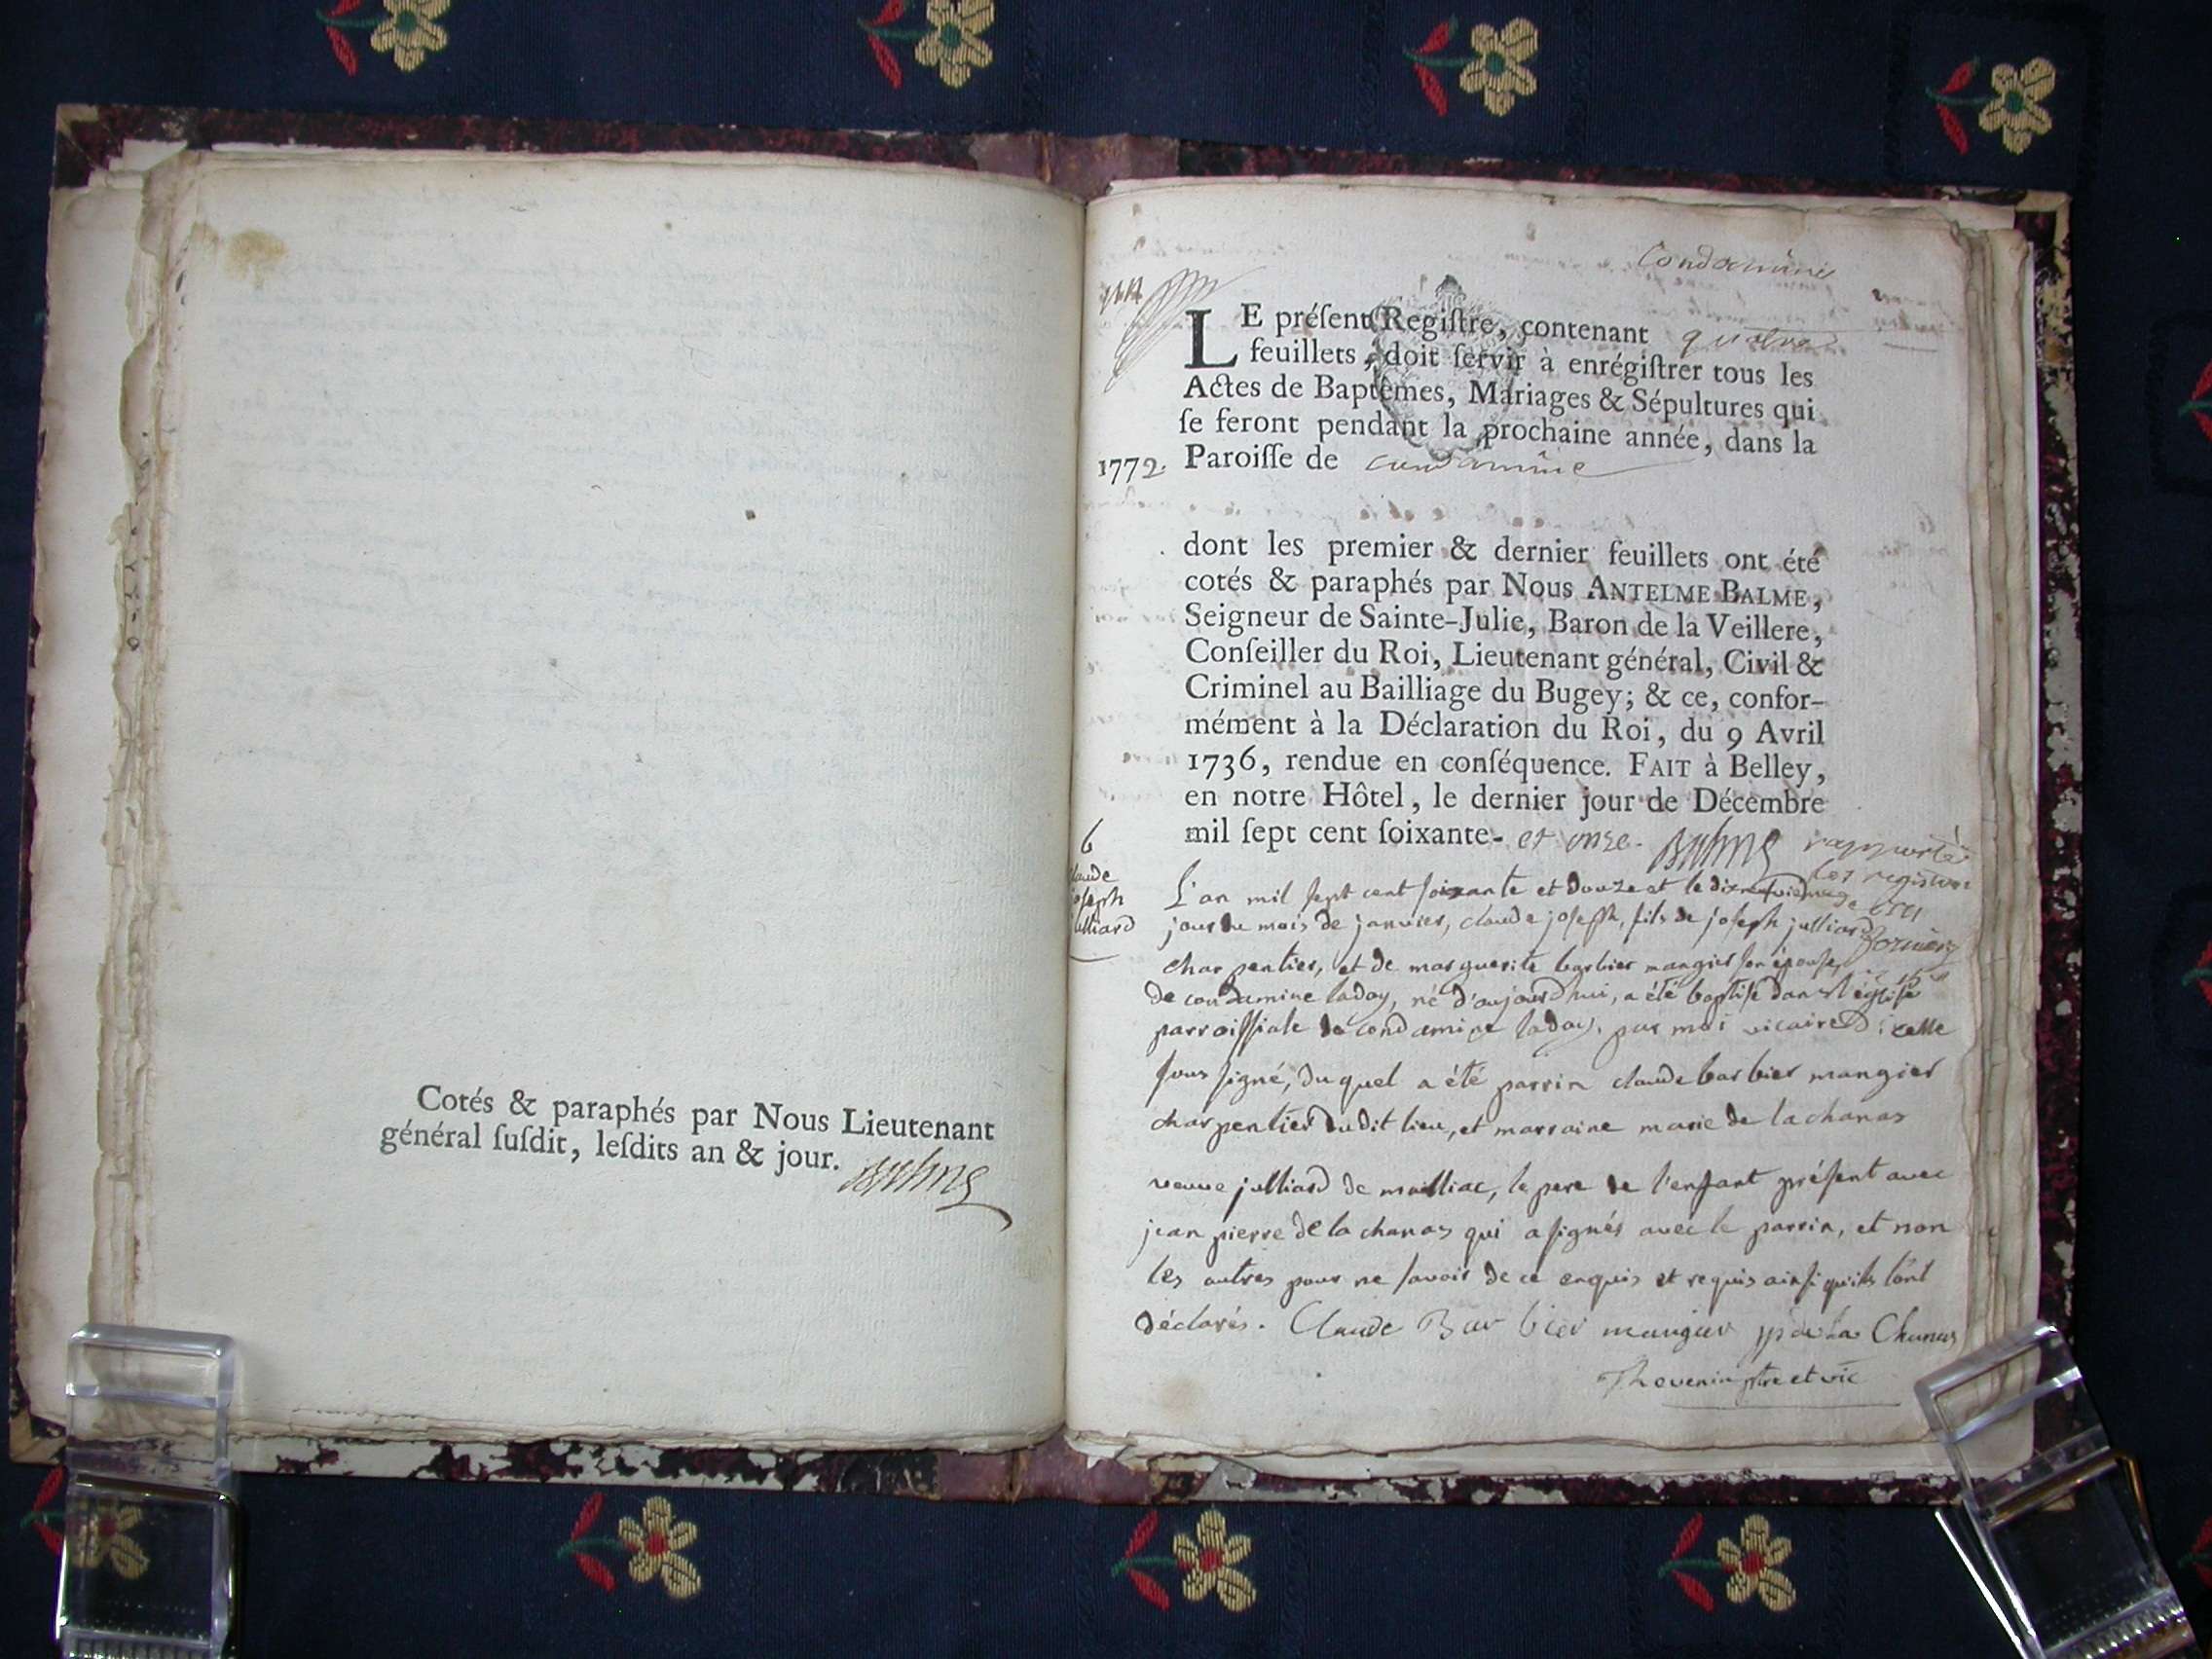 Cotés & paraphés par Nous Lieutenant
général ſuſdit, leſdits an & jour.
Balme
Condamine
LE préſent Regiſtre, contenant quatre
feuillets, doit ſervir à enrégiſtrer tous les
Actes de Baptêmes, Mariages & Sépultures qui
ſe feront pendant la prochaine année, dans la
1772. Paroiſſe de condamine
dont les premier & dernier feuillets ont été
cotés & paraphés par Nous ANTELME BALME,
Seigneur de Sainte-Julie, Baron de la Veillere,
Conſeiller du Roi, Lieutenant général, Civil &
Criminel au Bailliage du Bugey; & ce, confor-
mément à la Déclaration du Roi, du 9 Avril
1736, rendue en conſéquence. FAIT à Belley,
en notre Hôtel, le dernier jour de Décembre
mil ſept cent ſoixante- et onze. Balme
rapporté
les registres
6
claude
joseph
julliard
L'an mil sept cent soixante et douze et le dixneuvieme
jour du mois de janvier, claude joseph, fils de joseph julliard
charpentier, et de marguerite barbier mangier son épouse,
de condamine ladoy, né d'aujourd'hui, a été baptisé dans l'église
parroissiale de condamine ladoy, par moi vicaire d'icelle
sous signé, du quel a été parrin claude barbier mangier
charpentier dudit lieu, et marraine marie de lachanas
veuve julliard de mailliac, le pere de l'enfant présent avec
jean pierre de la chanas qui a signés avec le parrin, et non
les autres pour ne savoir de ce enquis et requis ainsi qu'ils l'ont
déclarés. Claude Barbier mangier jp de La Chanas
Thevenin ptre et vic